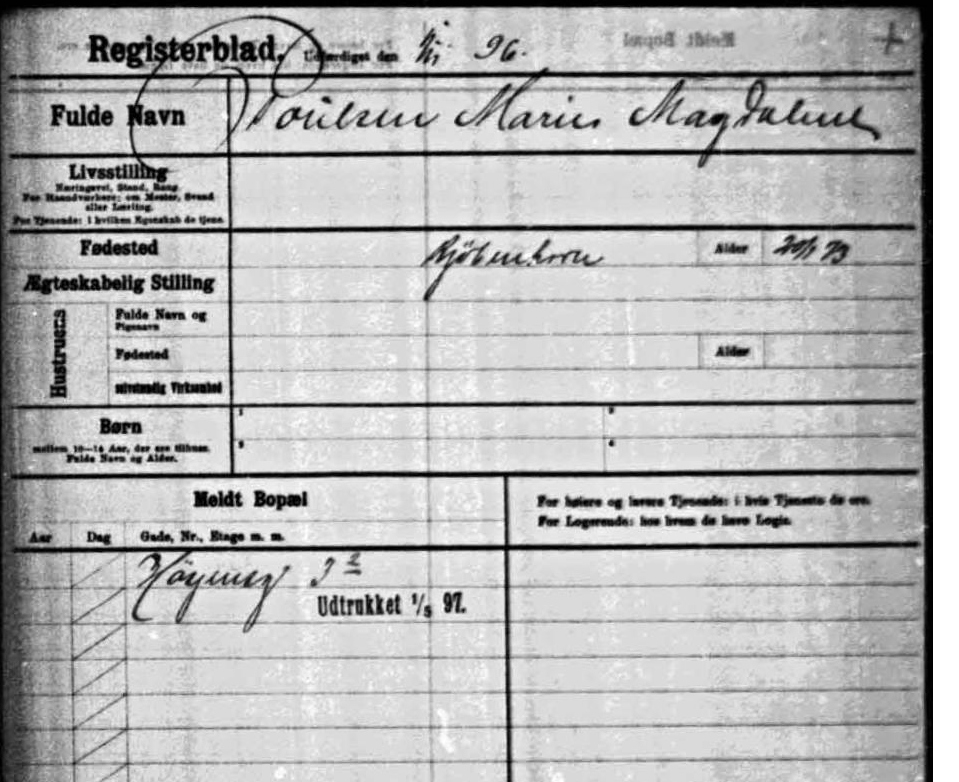 Registerblad. Udfærdiget den 96.
Fulde Navn Poulsen Marie Magdalene
Livsstilling
Næringsvei, Stand, Rang.
For Haandværkere: om Mester, Svend
eller Lærling.
For Tjenende: i hvilken Egenskab de tjene.
Fødested Kjöbenhavn Alder 73
Ægteskabelig Stilling
Hustruens
Fulde Navn og
Pigenavn
Fødested Alder
selvstændig Virksomhed
Børn
mellem 10—14 Aar, der ere tilhuse.
Fulde Navn og Alder.
1 2
3 4
Meldt Bopæl
For høiere og lavere Tjenende: i hvis Tjeneste de ere.
For Logerende: hos hvem de have Logis.
Aar Dag Gade, Nr., Etage m. m.
3 2
Udtrukket 1/5 97.